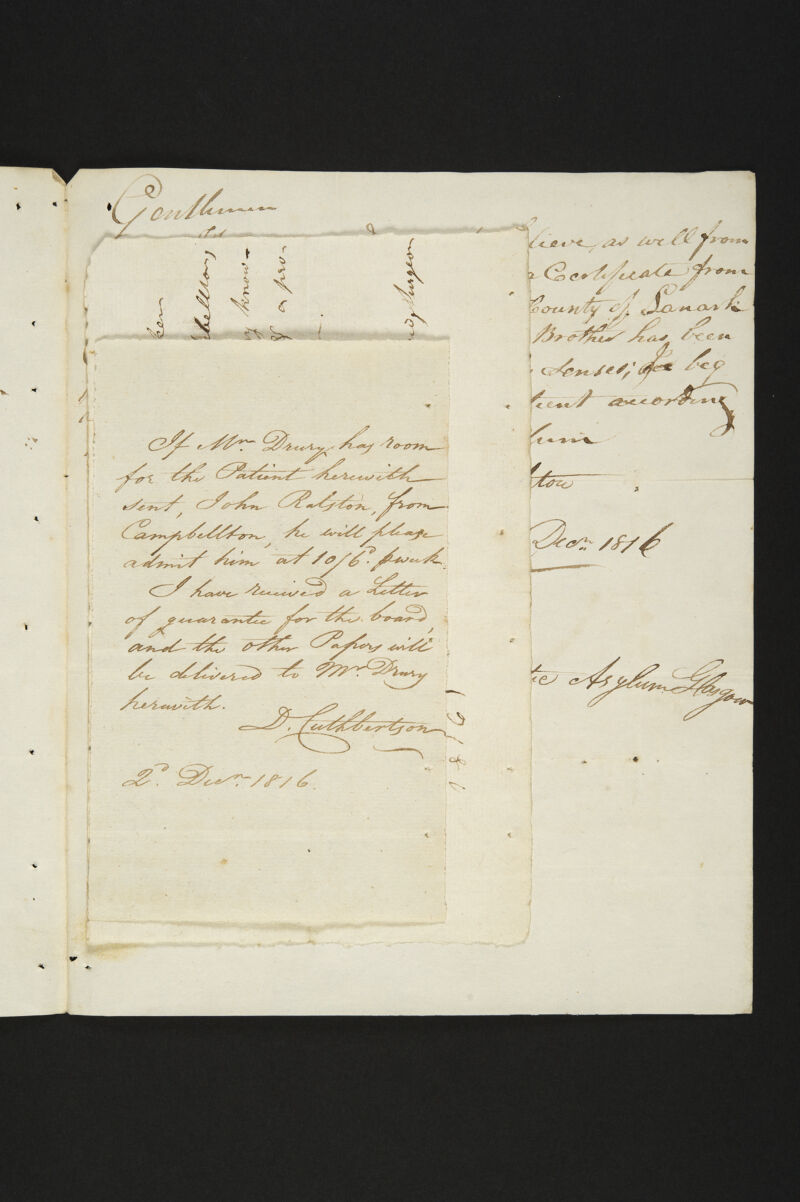 Gentlemen
lieve, as well from
a Certificate from
County of Lanark
Brother has been
Senses; beg
tient according
lum
ton
Decr. 1816
tic Asylum Glasgow
ken
bellton
know-
a pro-
Surgeon
If Mr. Drury has room
for the Patient herewith
sent, John Ralston, from
Campbellton, he will please
admit him at 10/6d. p week.
I have received a Letter
of guarantee for the board,
and the other Papers will
be delivered to Mr. Drury
herewith.
D. Cuthbertson
2d. Decr. 1816.